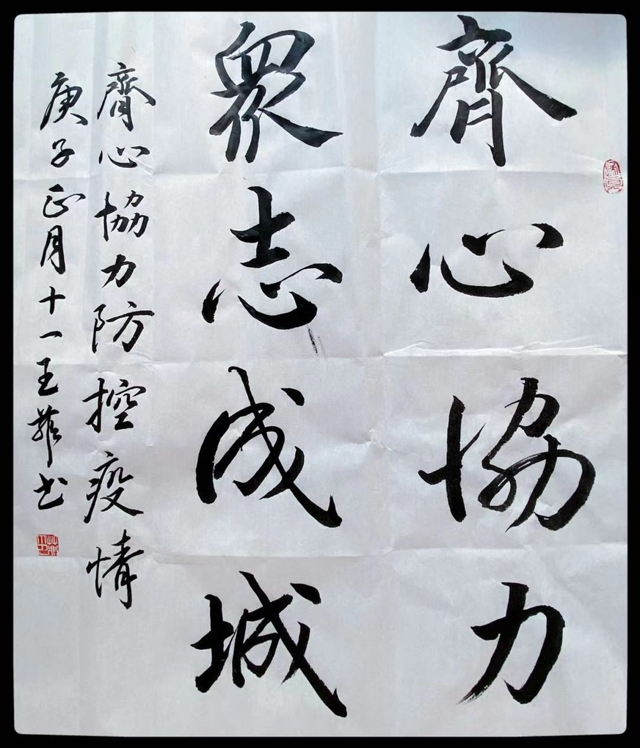 齊心協力
眾志成城
齊心協力防控疫情
庚子正月十一王華书